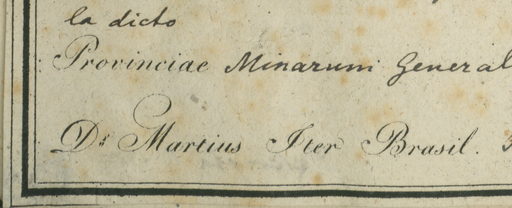 la dicto
Provinciae Minarum General
Dr. Martius Iter Brasil.